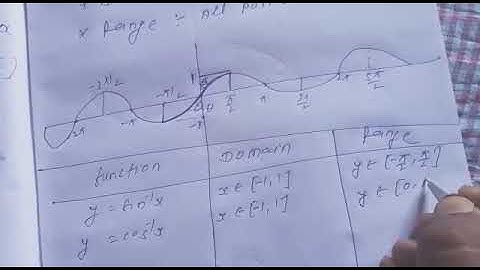 * Range ÷ All
-3π/2 -π/2 1 π/2 3π/2 2π 5π/2
-2π -π 0 π
-1
function Domain Range
y = sin⁻¹x x ∈ [-1, 1] y ∈ [-π/2, π/2]
y = cos⁻¹x x ∈ [-1, 1] y ∈ [0,